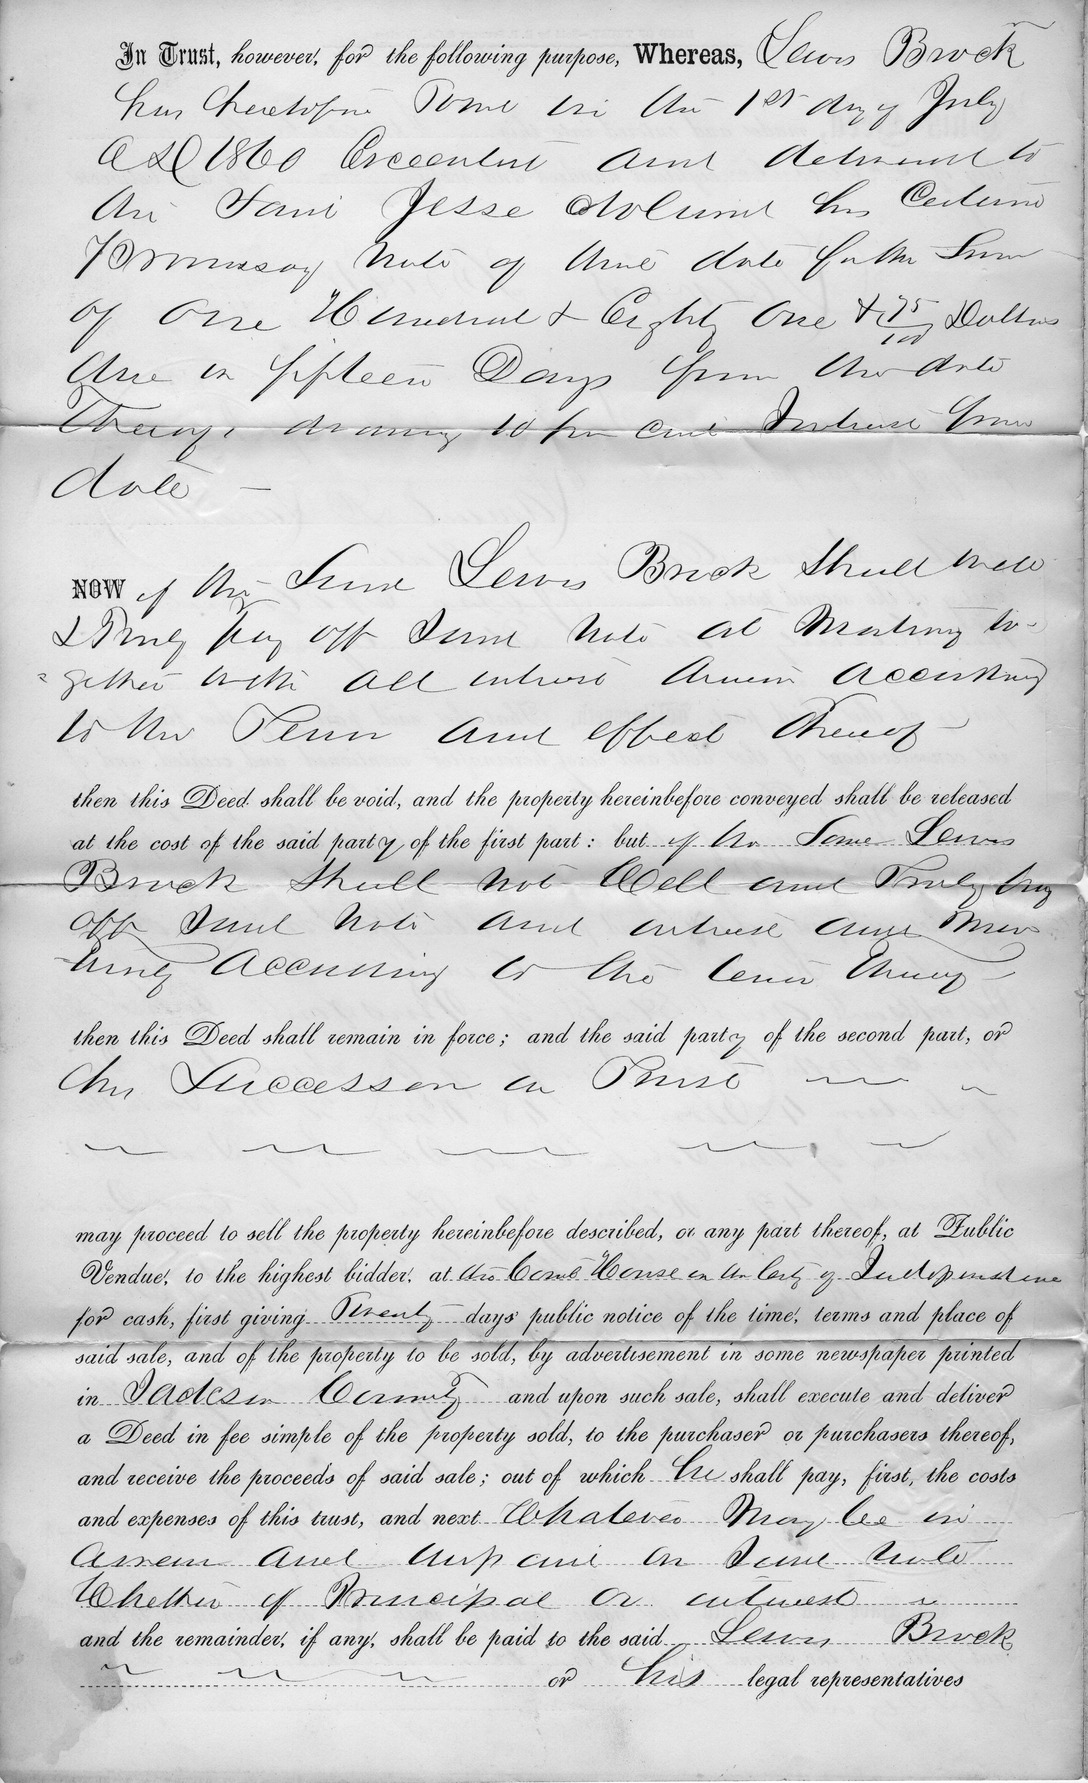 In Trust, however, for the following purpose, Whereas, Lewis Brock
has heretofore Towit on the 1st day of July
AD 1860 Executed and delivered to
the Said Jesse Noland his Certain
Promissory Note of that date for the Sum
of One Hundred & Eighty One & 75/100 Dollars
due in fifteen Days from the date
Thereof drawing 10 per cent Interest from
date —
NOW if the Said Lewis Brock Shall well
& Truly pay off Said Note at Maturity to-
gether with all interest therein according
to the Tenor and effect thereof
then this Deed shall be void, and the property hereinbefore conveyed shall be released
at the cost of the said party of the first part: but if the Said Lewis
Brock Shall not Well and Truly pay
off Said Note and interest at Ma
turity According to the tenor thereof
then this Deed shall remain in force; and the said party of the second part, or
his Successor in Trust
may proceed to sell the property hereinbefore described, or any part thereof, at Public
Vendue, to the highest bidder, at the Court House in the City of Independence
for cash, first giving Twenty days' public notice of the time, terms and place of
said sale, and of the property to be sold, by advertisement in some newspaper printed
in Jackson County and upon such sale, shall execute and deliver
a Deed in fee simple of the property sold, to the purchaser or purchasers thereof,
and receive the proceeds of said sale; out of which he shall pay, first, the costs
and expenses of this trust, and next Whatever May be in
arrear and unpaid on Said Note
Whether of Principal or interest
and the remainder, if any, shall be paid to the said Lewis Brock
or his legal representatives